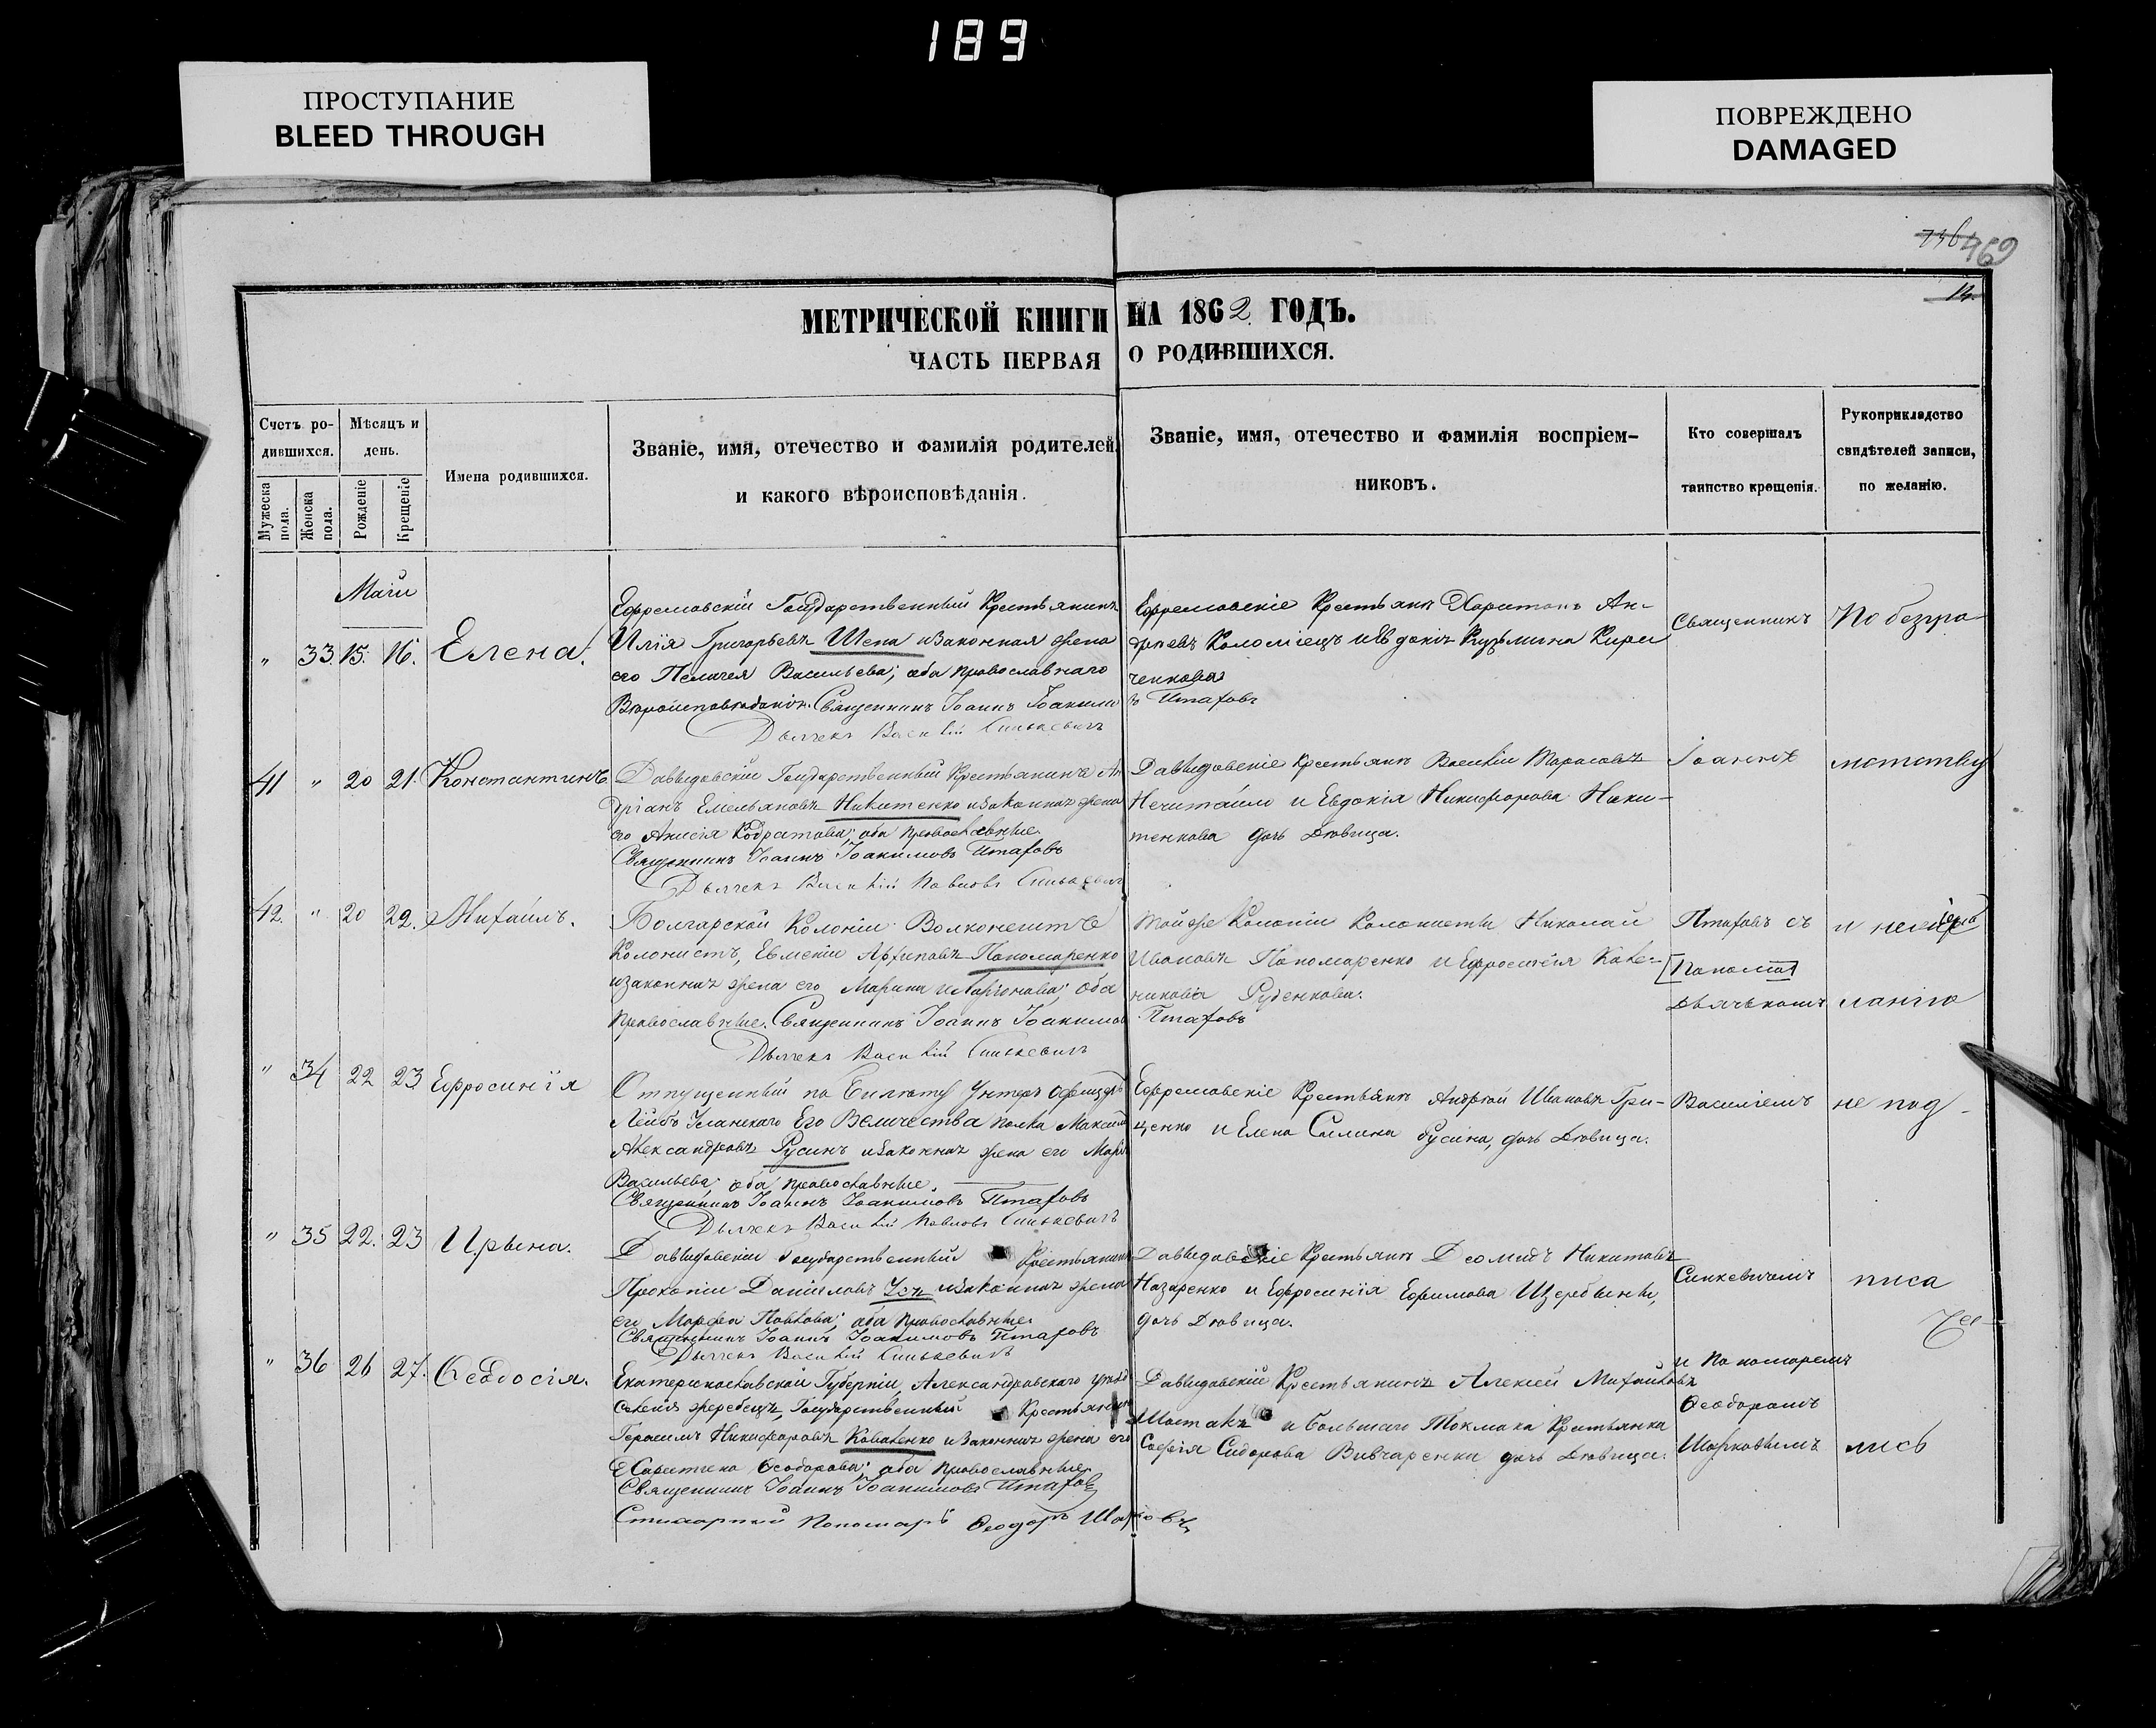 189
ПРОСТУПАНИЕ
BLEED THROUGH
ПОВРЕЖДЕНО
DAMAGED
469
14.
МЕТРИЧЕСКОЙ КНИГИ НА 1862 ГОДЪ.
ЧАСТЬ ПЕРВАЯ О РОДИВШИХСЯ.
Счетъ ро-
дившихся.
Мужеска
пола.
Женска
пола.
Мѣсяцъ и
день.
Рожденіе
Крещеніе
Имена родившихся.
Званіе, имя, отечество и фамилія родителей,
и какого вѣроисповѣданія.
Званіе, имя, отечество и фамилія воспріем-
никовъ.
Кто совершалъ
таинство крещенія.
Рукоприкладство
свидѣтелей записи,
по желанію.
Маія
" 33. 15. 16. Елена.
Ефремовскій Государственный Крестьянинъ
Илія Григорьевъ Шепа и законная жена
его Пелагея Васильева; оба православнаго
Вѣроисповѣданія. Священникъ Іоаннъ Іоакимовъ Птаховъ
Дьячекъ Василій Синькевичъ
Ефремовскіе Крестьяне Харитонъ Ан-
дреевъ Коломіецъ и Евдокія Кузьмина Кири
ченкова
Священникъ
По безгра
41 " 20 21. Константинъ
Давыдовскій Государственный Крестьянинъ Ан
дріанъ Емельяновъ Никитенко и законная жена
его Анисія Кодратова; оба православные.
Священникъ Іоаннъ Іоакимовъ Птаховъ
Дьячекъ Василій Павловъ Синькевичъ
Давыдовскіе крестьяне Василій Тарасовъ
Нечитайло и Евдокія Никифорова Ники-
тенкова дочь Дѣвица.
Іоаннъ
мотству
42. " 20 22. Михаилъ.
Болгарской Колоніи
Колонистъ, Евменій Архиповъ Пономаренко
и законная жена его Марина Иларіонова; оба
православные. Священникъ Іоаннъ Іоакимовъ Птаховъ
Дьячекъ Василій Синькевичъ
Тойже Колоніи Колонисты Николай
Ивановъ Пономаренко и Ефросинія
Руденкова.
Птаховъ съ
Дьячькомъ
и
" 34 22 23 Ефросинія
Отпущенный по билету Унтеръ Офицеръ
Лейбъ Уланскаго Его Величества полка Максимъ
Александровъ Русинъ и законная жена его Марія
Васильева; оба православные.
Священникъ Іоаннъ Іоакимовъ Птаховъ
Дьячекъ Василій Павловъ Синькевичъ
Ефремовскіе Крестьяне Андрей Ивановъ Гри-
ценко и Елена Силина Русина, дочь Дѣвица.
Василіемъ
не под-
" 35 22. 23 Ирына.
Давыдовскій Государственный Крестьянинъ
Прокопій Даніиловъ Усъ и законная жена
его Марфа Павлова; оба православные
Священникъ Іоаннъ Іоакимовъ Птаховъ
Дьячекъ Василій Синькевичъ
Давыдовскіе Крестьяне Деомидъ Никитовъ
Назаренко и Ефросинія Ефимова
дочь Дѣвица.
Синкевичемъ
писа
" 36 26 27. Ѳеодосія.
Екатеринославской Губерніи, Александровскаго уѣзда
Государственный Крестьянинъ
Герасимъ Никифоровъ Коваленко и законная жена его
Харитина Ѳеодорова; оба православные.
Священникъ Іоаннъ Іоакимовъ Птаховъ
Стихарный Пономарь Ѳеодоръ
Давыдовскій Крестьянинъ Алексей Михайловъ
Шостакъ и большаго Токмака Крестьянка
Софія Сидорова Вивчаренки дочь Дѣвица.
и Пономаремъ
Ѳеодоромъ
лись